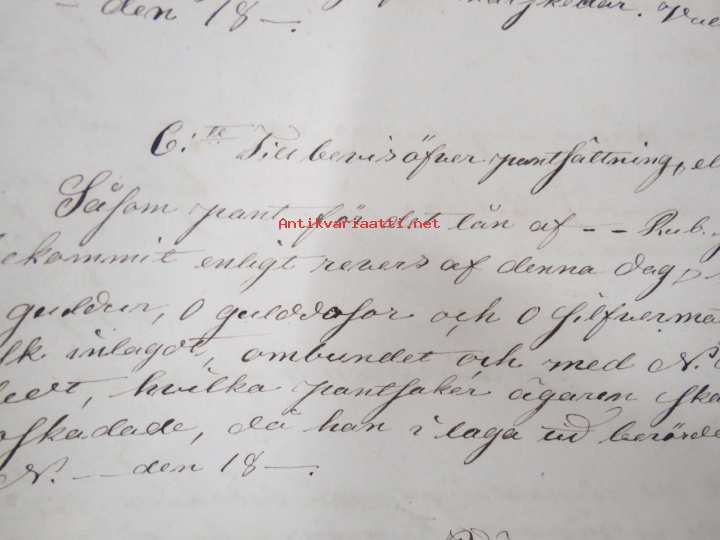 den 18 —.
C: Till bevis öfver pantsättning, el
Såsom pant för det lån af -- Rub.
ekommit enligt revers af denna dag,
guldur, 0 gulddosor och 0 silfverma
inlagdt, ombundet och med N.
hvilka pantsaker ägaren ska
oskadade, då han i laga tid
N. — den 18 —.
Antikvariaatti.net